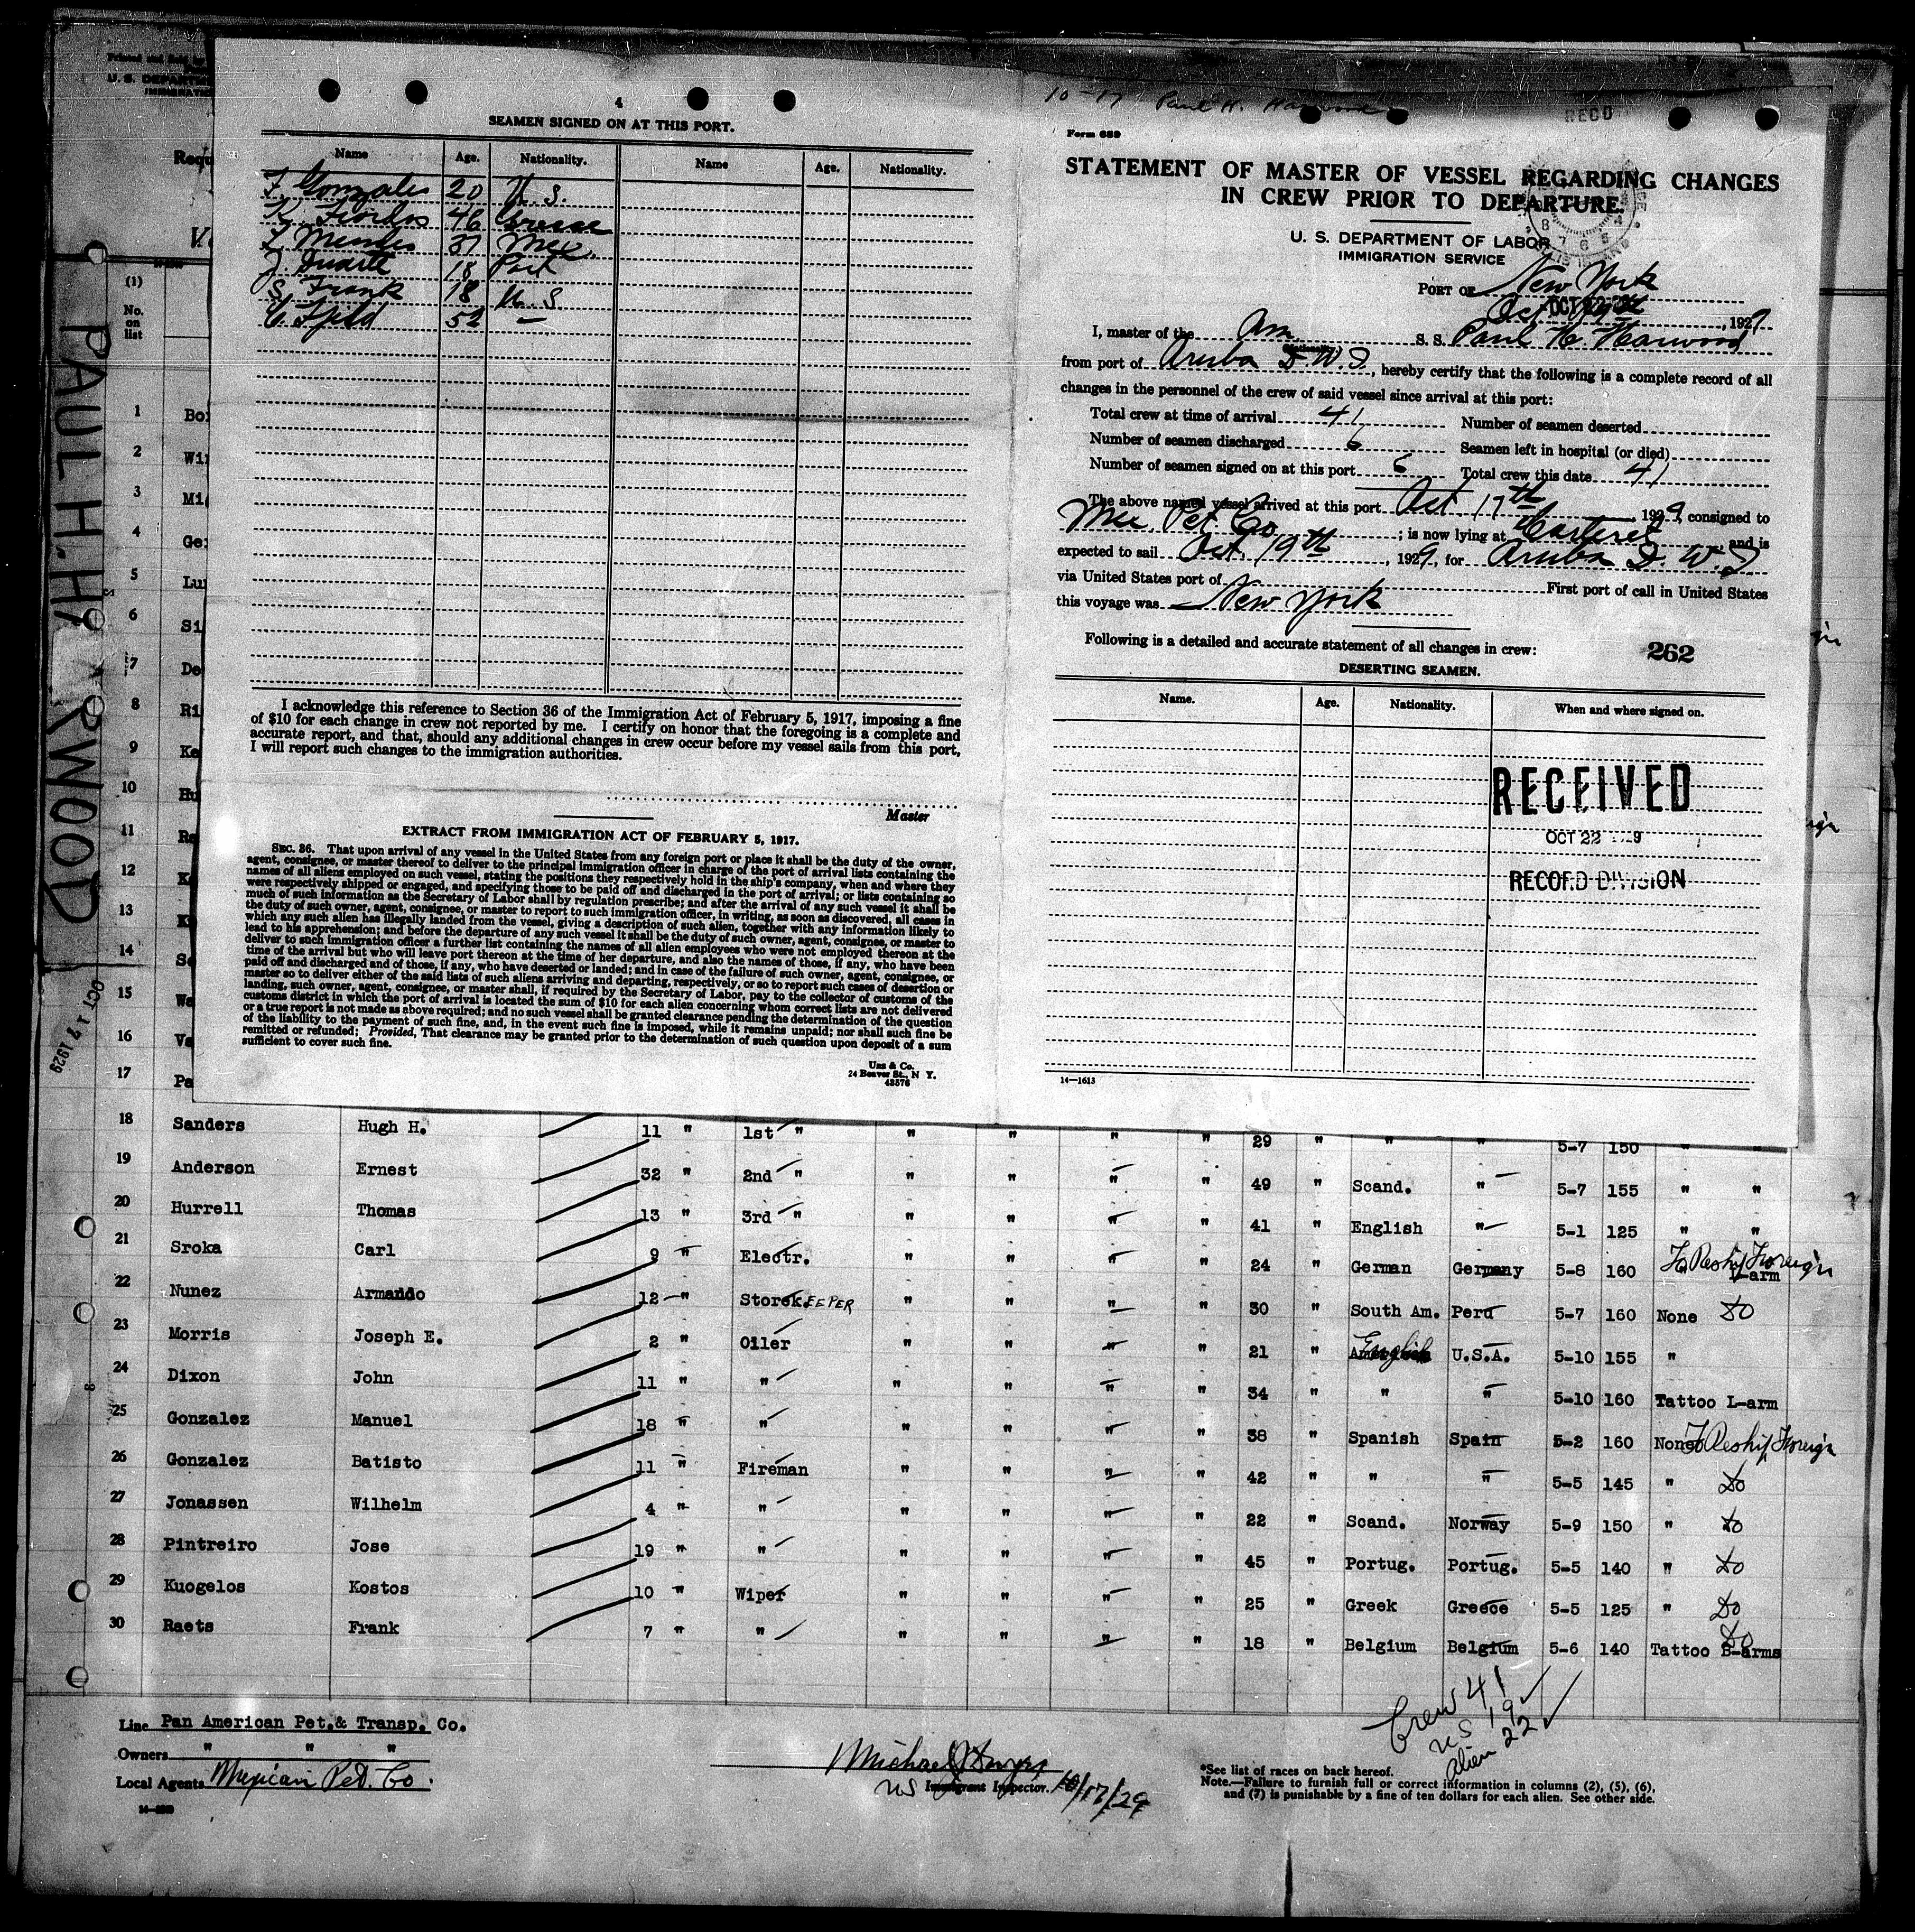 Printed and Sold by
U. S. DEPARTM
IMMIGRATI
Requ
(1)
No.
on
list
PAUL H. HARWOOD
OCT 17 1929
4
SEAMEN SIGNED ON AT THIS PORT.
Name Age. Nationality. Name Age. Nationality.
F. Gonzales 20 U. S.
46 Greece
Mendes 37 Mex.
J. Duarte 18 Port
S. Frank 18 U. S
52 —
I acknowledge this reference to Section 36 of the Immigration Act of February 5, 1917, imposing a fine
of $10 for each change in crew not reported by me. I certify on honor that the foregoing is a complete and
accurate report, and that, should any additional changes in crew occur before my vessel sails from this port,
I will report such changes to the immigration authorities.
Master
EXTRACT FROM IMMIGRATION ACT OF FEBRUARY 5, 1917.
SEC. 36. That upon arrival of any vessel in the United States from any foreign port or place it shall be the duty of the owner,
agent, consignee, or master thereof to deliver to the principal immigration officer in charge of the port of arrival lists containing the
names of all aliens employed on such vessel, stating the positions they respectively hold in the ship's company, when and where they
were respectively shipped or engaged, and specifying those to be paid off and discharged in the port of arrival; or lists containing so
much of such information as the Secretary of Labor shall by regulation prescribe; and after the arrival of any such vessel it shall be
the duty of such owner, agent, consignee, or master to report to such immigration officer, in writing, as soon as discovered, all cases in
which any such alien has illegally landed from the vessel, giving a description of such alien, together with any information likely to
lead to his apprehension; and before the departure of any such vessel it shall be the duty of such owner, agent, consignee, or master to
deliver to such immigration officer a further list containing the names of all alien employees who were not employed thereon at the
time of the arrival but who will leave port thereon at the time of her departure, and also the names of those, if any, who have been
paid off and discharged and of those, if any, who have deserted or landed; and in case of the failure of such owner, agent, consignee, or
master so to deliver either of the said lists of such aliens arriving and departing, respectively, or so to report such cases of desertion or
landing, such owner, agent, consignee, or master shall, if required by the Secretary of Labor, pay to the collector of customs of the
customs district in which the port of arrival is located the sum of $10 for each alien concerning whom correct lists are not delivered
or a true report is not made as above required; and no such vessel shall be granted clearance pending the determination of the question
of the liability to the payment of such fine, and, in the event such fine is imposed, while it remains unpaid; nor shall such fine be
remitted or refunded; Provided, That clearance may be granted prior to the determination of such question upon deposit of a sum
sufficient to cover such fine.
Uns & Co.
24 Beaver St., N Y.
43576
10-17 Paul H. Harwood
RECD
Form 689
STATEMENT OF MASTER OF VESSEL REGARDING CHANGES
IN CREW PRIOR TO DEPARTURE.
U. S. DEPARTMENT OF LABOR
IMMIGRATION SERVICE
PORT OF New York
Oct 19th, 1929
I, master of the Am. S. S. Paul H. Harwood
from port of Aruba D. W. I., hereby certify that the following is a complete record of all
changes in the personnel of the crew of said vessel since arrival at this port:
Total crew at time of arrival 41 Number of seamen deserted
Number of seamen discharged 6 Seamen left in hospital (or died)
Number of seamen signed on at this port 6 Total crew this date 41
The above named vessel arrived at this port Oct 17th 1929, consigned to
Mex. Pet. Co; is now lying at Carteret and is
expected to sail Oct. 19th, 1929, for Aruba D. W. I
via United States port of First port of call in United States
this voyage was New York
Following is a detailed and accurate statement of all changes in crew: 262
DESERTING SEAMEN.
Name. Age. Nationality. When and where signed on.
RECEIVED
OCT 22 9
RECORD DIVISION
14—1613
1 Bo
2 Wi
3 Mi
4 Ge
5 Lu
6 Si
7 De
8 Ri
9 Ke
10 Hu
11 Ra
12 K
13 K
14 S
15 Wa
16 Va
17 Pa
18 Sanders Hugh H. 11 " 1st " " " " " 29 " " " 5-7 150 " "
19 Anderson Ernest 32 " 2nd " " " " " 49 " Scand. " 5-7 155 " "
20 Hurrell Thomas 13 " 3rd " " " " " 41 " English " 5-1 125 " "
21 Sroka Carl 9 " Electr. " " " " 24 " German Germany 5-8 160 To Reship Foreign L-arm
22 Nunez Armando 12 " StoreKEEPER " " " " 30 " South Am. Peru 5-7 160 None Do
23 Morris Joseph E. 2 " Oiler " " " " 21 " English U.S.A. 5-10 155 "
24 Dixon John 11 " " " " " " 34 " " " 5-10 160 Tattoo L-arm
25 Gonzalez Manuel 18 " " " " " " 38 " Spanish Spain 5-2 160 None To Reship Foreign
26 Gonzalez Batisto 11 " Fireman " " " " 42 " " " 5-5 145 " Do
27 Jonassen Wilhelm 4 " " " " " " 22 " Scand. Norway 5-9 150 " Do
28 Pintreiro Jose 19 " " " " " " 45 " Portug. Portug. 5-5 140 " Do
29 Kuogelos Kostos 10 " Wiper " " " " 25 " Greek Greece 5-5 125 " Do
30 Raets Frank 7 " " " " " " 18 " Belgium Belgium 5-6 140 Tattoo B-arms Do
Crew 41
US 19
Alien 22
Line Pan American Pet.& Transp. Co.
Owners " " "
Local Agents Mexican Pet. Co.
14—1619
Michael
US Immigrant Inspector. 10/17/29
*See list of races on back hereof.
Note.—Failure to furnish full or correct information in columns (2), (5), (6),
and (7) is punishable by a fine of ten dollars for each alien. See other side.